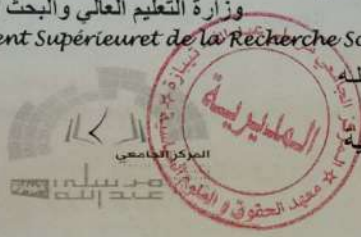 وزارة التعليم العالي والبحث
ent Supérieuret de la Recherche Sc
المركز الجامعي
مرسلي
عبد الله
المديرية
معهد الحقوق و العلوم